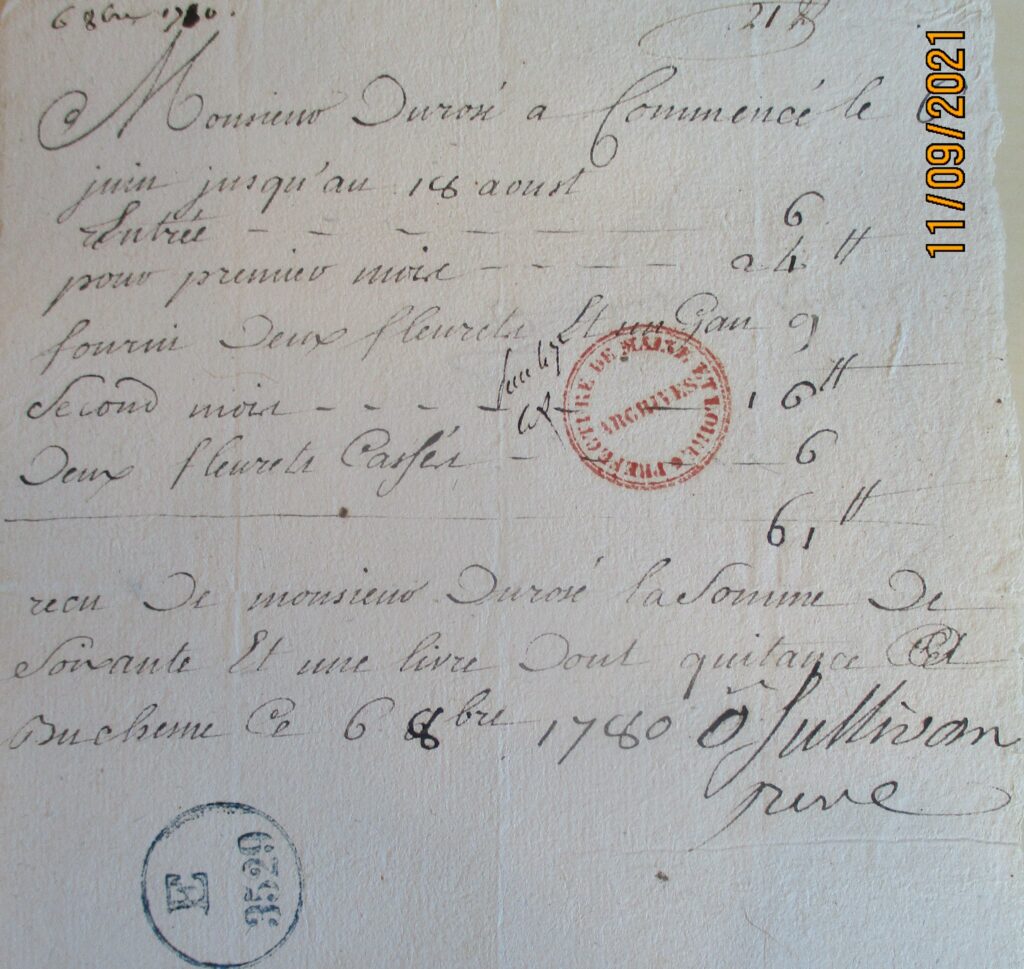 6 8bre 1780.
21 #
Monsieur Durosé a Commencé le 6
juin jusqu'au 18 aoust
Entrée - - - - - 6
pour premier mois - - - - - 24 #
fourni Deux fleurets Et un Gan 9
Second mois - - - - - 16 #
Deux fleurets Cassés - - 6
61 #
recu De monsieur Durosé la Somme De
Soixante Et une livre Dont quitance
Ducheme Ce 6 8bre 1780 O Sullivan
PREFECTURE DE MAINE ET LOIRE
ARCHIVES
E
3529
11/09/2021